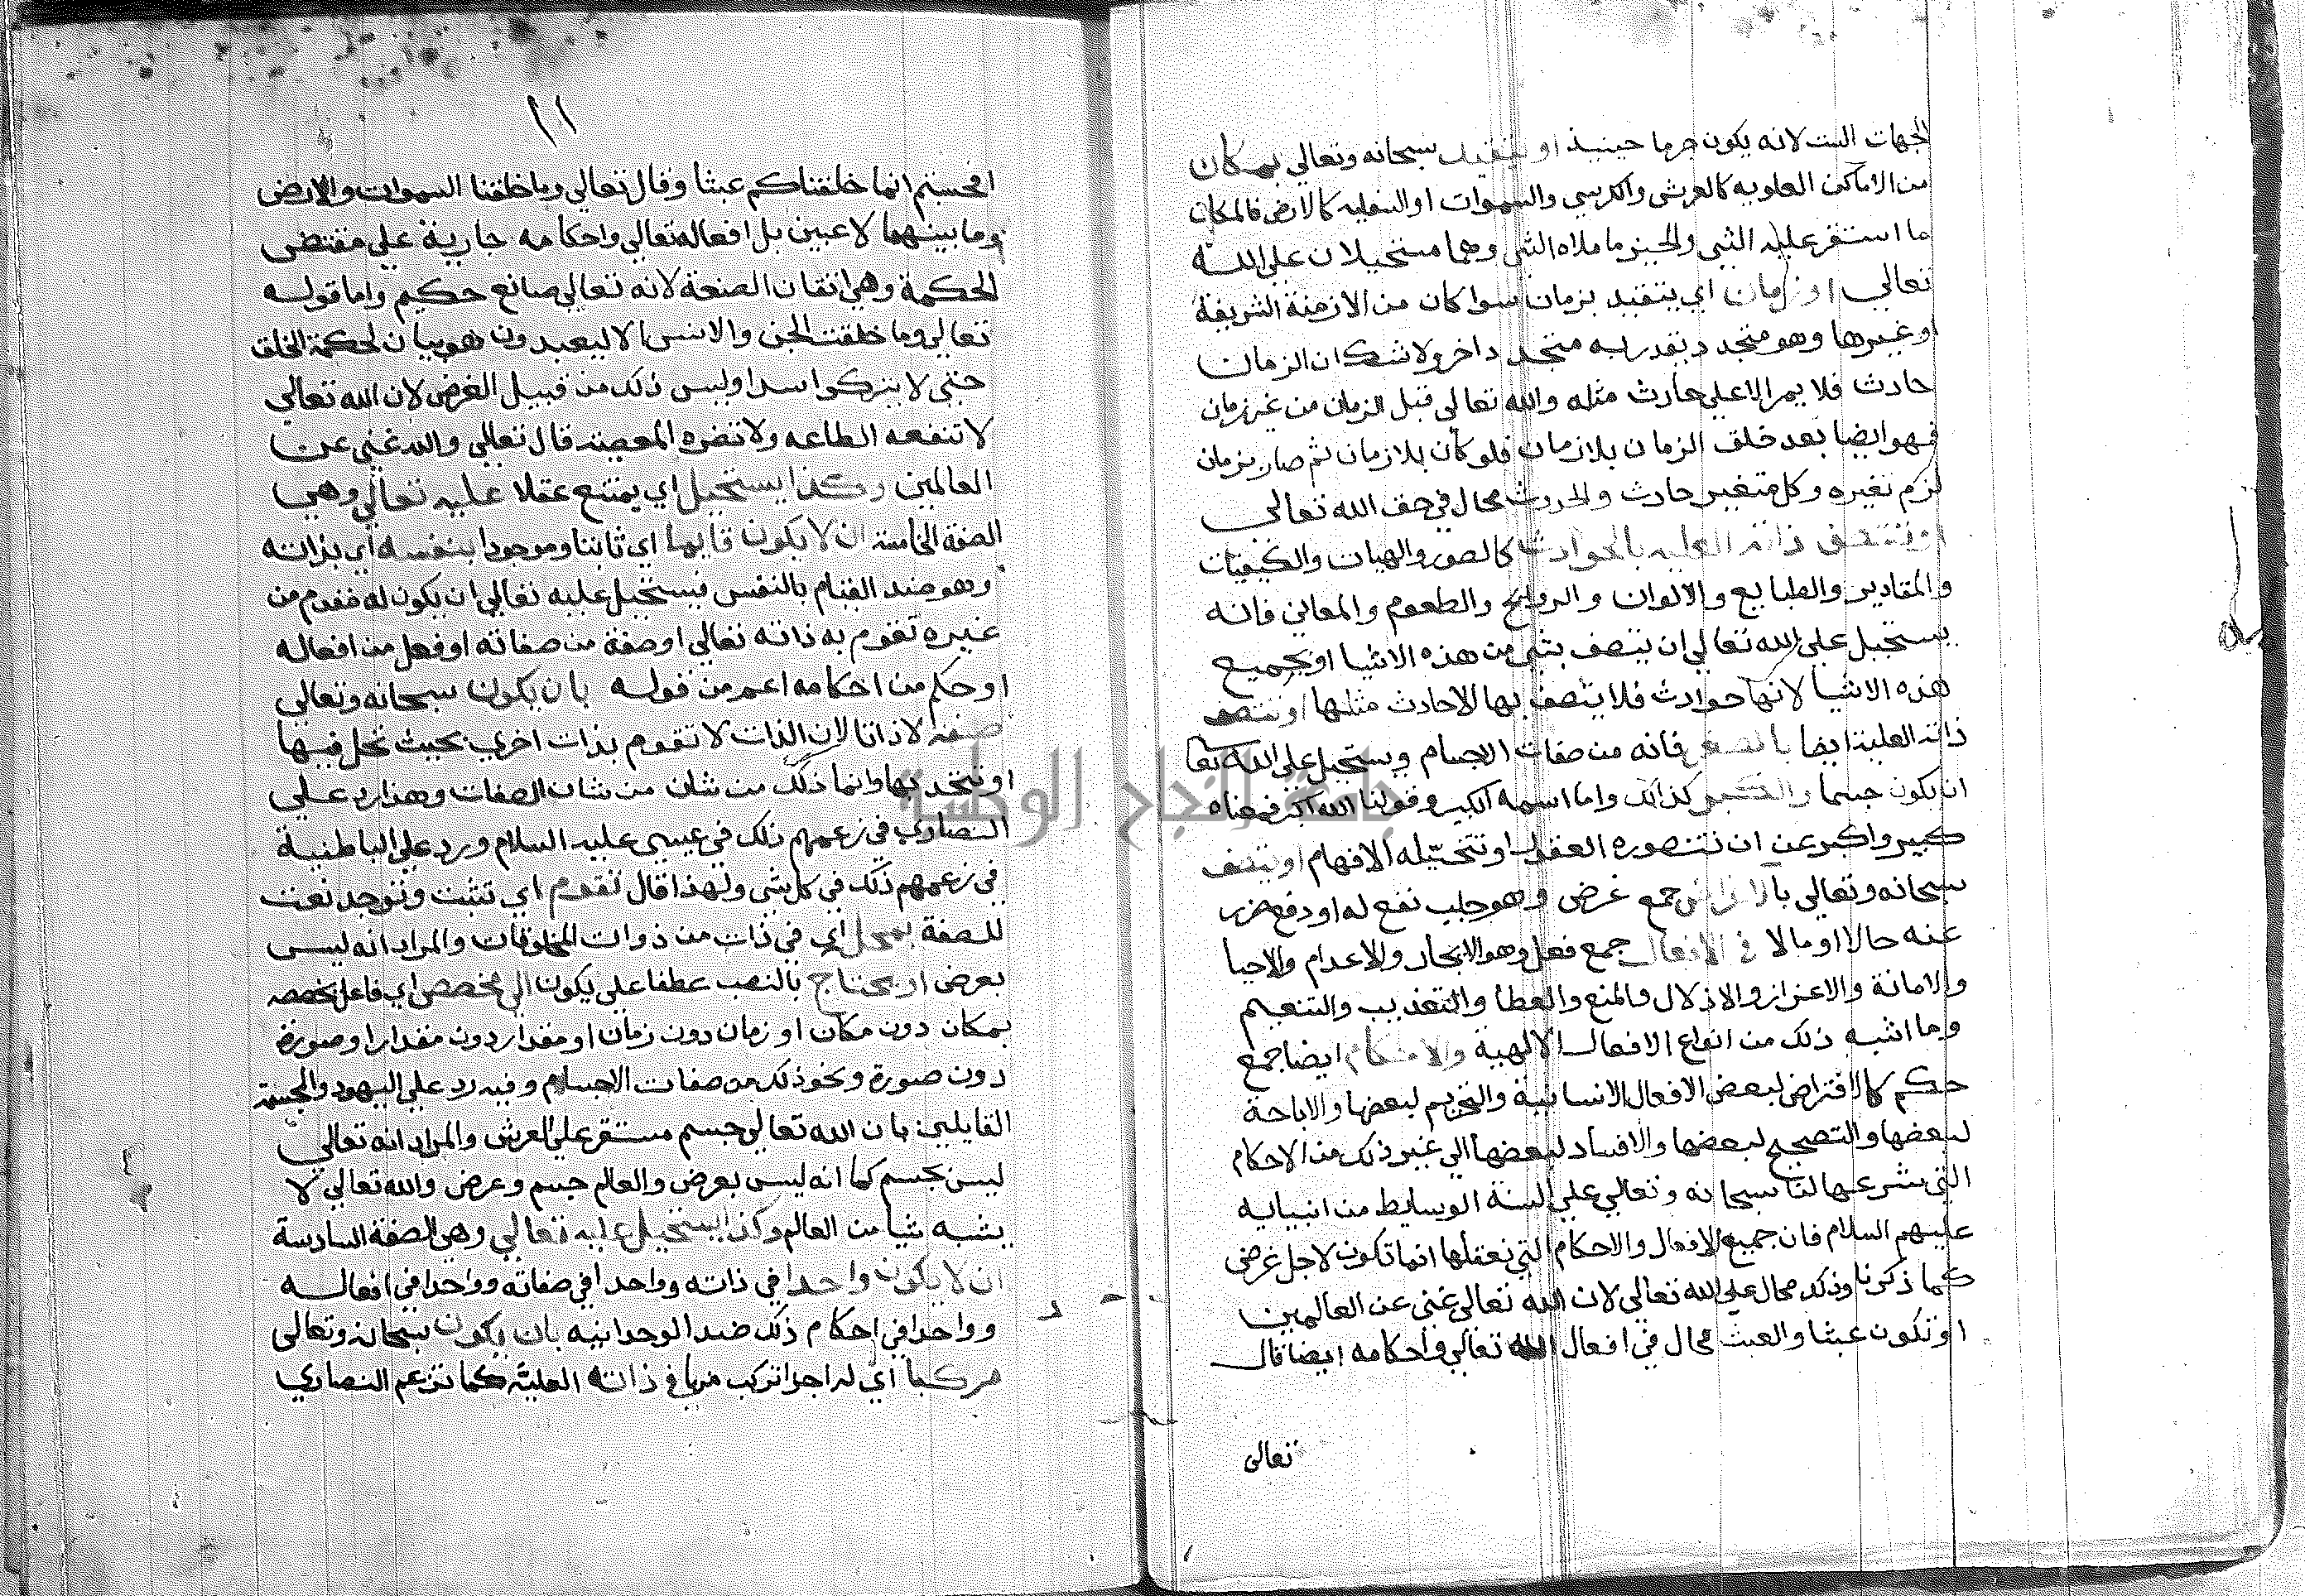 الجهات الست لانه يكون جرما حينيذ او يتقيد سبحانه وتعالي بمكان
من الاماكن العلويه كالعرش والكرسي والسموات او السفليه كالارض فالمكان
ما استقر عليه الشي والحيز ما ملاه الشي وهما مستحيلان علي الله
تعالي او زمان اي يتقيد بزمان سوا كان من الازمنة الشريفة
او غيرها وهو متجدد يقدر به متجدد اخر ولا شك ان الزمان
حادث فلا يمر الا علي حادث مثله والله تعالي قبل الزمان من غير زمان
فهو ايضا بعد خلق الزمان بلا زمان فلو كان بلا زمان ثم صار بزمان
لزم تغيره وكل متغير حادث والحدوث محال في حق الله تعالي
او تتصف ذاته العليه بالحوادث كالصور والهيات والكيفيات
والمقادير والطبايع والالوان والروايح والطعوم والمعاني فانه
يستحيل علي الله تعالي ان يتصف بشي من هذه الاشيا او بجميع
هذه الاشيا لانها حوادث فلا يتصف بها الا حادث مثلها او تتصف
ذاته العلية ايضا بالصغر فانه من صفات الاجسام ويستحيل علي الله تعا
ان يكون جسما والكبر كذلك واما اسمه الكبير وقولنا الله اكبر فمعناه
كبير واكبر عن ان تتصوره العقول او تتخيله الافهام او يتصف
سبحانه وتعالي بالاغراض جمع غرض وهو جلب نفع له او دفع ضرر
عنه حالا او مالا في الافعال جمع فعل وهو الايجاد والاعدام والاحيا
والاماتة والاعزاز والاذلال والمنع والعطا والتعذيب والتنعيم
وما اشبه ذلك من انواع الافعال الالهية والاحكام ايضا جمع
حكم كالافتراض لبعض الافعال الانسانية والتحريم لبعضها والاباحة
لبعضها والتصحيح لبعضها والافساد لبعضها الي غير ذلك من الاحكام
التي شرعها لنا سبحانه وتعالي علي السنة الوسايط من انبيايه
عليهم السلام فان جميع الافعال والاحكام التي نعقلها انما تكون لاجل غرض
كما ذكرنا وذلك محال علي الله تعالي لان الله تعالي غني عن العالمين
او تكون عبثا والعبث محال في افعال الله تعالي واحكامه ايضا قال
تعالى
١١
افحسبتم انما خلقناكم عبثا وقال تعالي وما خلقنا السموات والارض
وما بينهما لاعبين بل افعاله تعالي واحكامه جارية علي مقتضي
الحكمة وهي اتقان الصنعة لانه تعالي صانع حكيم واما قوله
تعالي وما خلقت الجن والانس الا ليعبدون هو بيان لحكمة الخلق
حتي لا يتركوا سدا وليس ذلك من قبيل الغرض لان الله تعالي
لا تنفعه الطاعه ولا تضره المعصيه قال تعالي والله غني عن
العالمين وكذا يستحيل اي يمتنع عقلا عليه تعالي وهي
الصفة الخامسة ان لا يكون قايما اي ثابتا وموجودا بنفسه اي بذاته
وهو ضد القيام بالنفس فيستحيل عليه تعالي ان يكون له مقوم من
غيره تقوم به ذاته تعالي او صفة من صفاته او فعل من افعاله
او حكم من احكامه اعم من قوله بان يكون سبحانه وتعالي
صفة لا ذاتا لان الذات لا تقوم بذات اخري بحيث تحل فيها
او تتحد بها وانما ذلك من شان من شان الصفات وهذا رد علي
النصاري في زعمهم ذلك في عيسي عليه السلام ورد علي الباطنية
في زعمهم ذلك في كل شي ولهذا قال تقوم اي تثبت وتوجد نعت
للصفة بمحل اي في ذات من ذوات المخلوقات والمراد انه ليس
بعرض او يحتاج بالنصب عطفا علي يكون الي مخصص اي فاعل يخصصه
بمكان دون مكان او زمان دون زمان او مقدار دون مقدار او صورة
دون صورة ونحو ذلك من صفات الاجسام وفيه رد علي اليهود والمجسمة
القايلين بان الله تعالي جسم مستقر علي العرش والمراد انه تعالي
ليس بجسم كما انه ليس بعرض والعالم جسم وعرض والله تعالي لا
يشبه شيا من العالم وكذا يستحيل عليه تعالي وهي الصفة السادسة
ان لا يكون واحدا في ذاته وواحدا في صفاته وواحدا في افعاله
وواحدا في احكام ذلك ضد الوحدانيه بان يكون سبحانه وتعالى
مركبا اي له اجزا تركب منها في ذاته العليّة كما تزعم النصاري
جامعة النجاح الوطنية